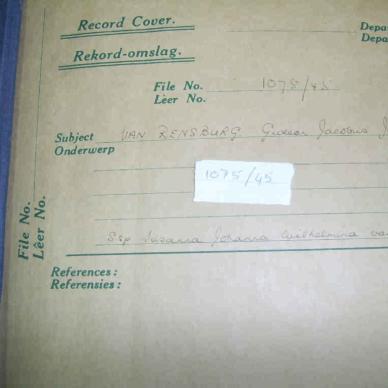 Record Cover.
Depa
Rekord-omslag.
Depa
File No. 1075/45
Lêer No.
Subject VAN RENSBURG Gideon Jacobus J
Onderwerp
1075/45
Ssp Susanna Johanna Wilhelmina va
References:
Referensies:
File No.
Lêer No.